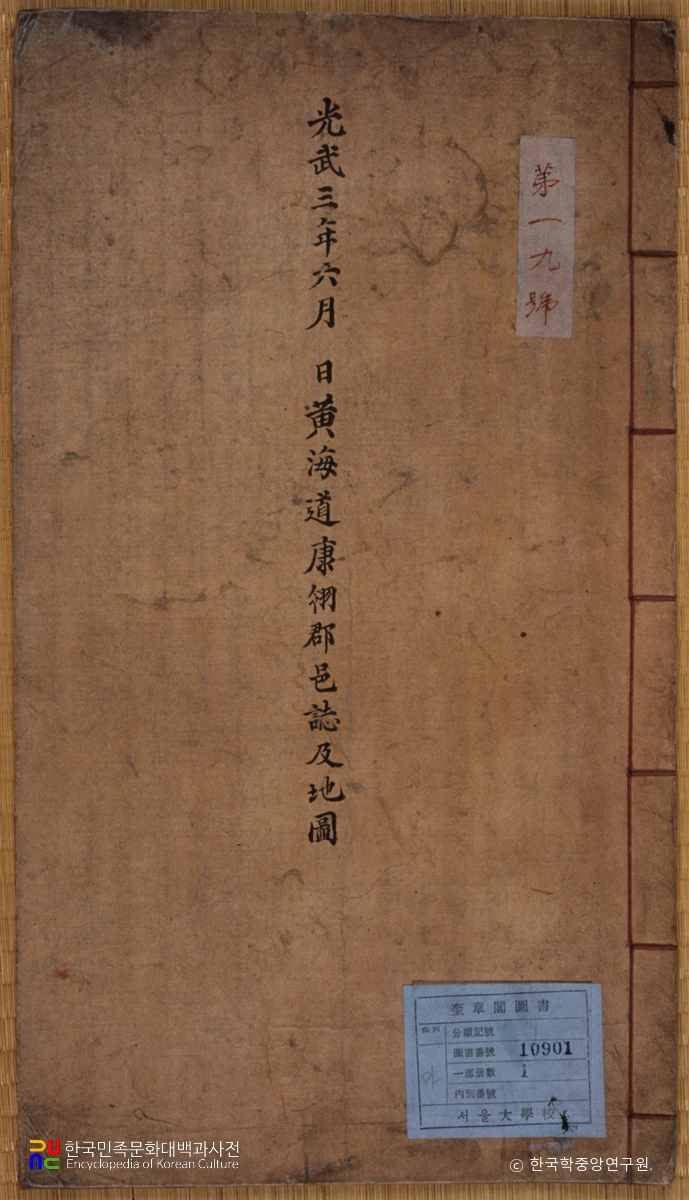 第一九號
光武三年六月 日黃海道康翎郡邑誌及地圖
奎章閣圖書
分類記號
圖書番號 10901
一部冊數 1
內別番號
서울大學校
한국민족문화대백과사전
Encyclopedia of Korean Culture
© 한국학중앙연구원.